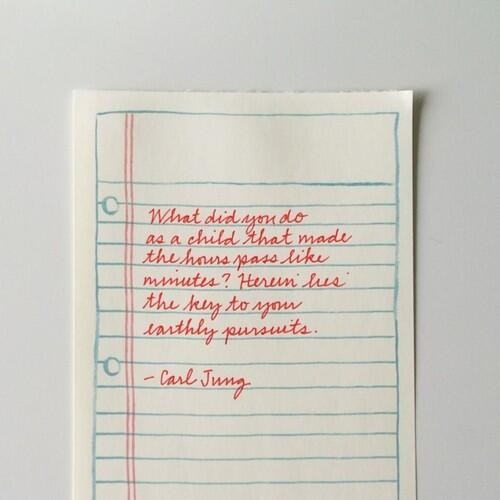 What did you do
as a child that made
the hours pass like
minutes? Herein lies
the key to your
earthly pursuits.
- Carl Jung